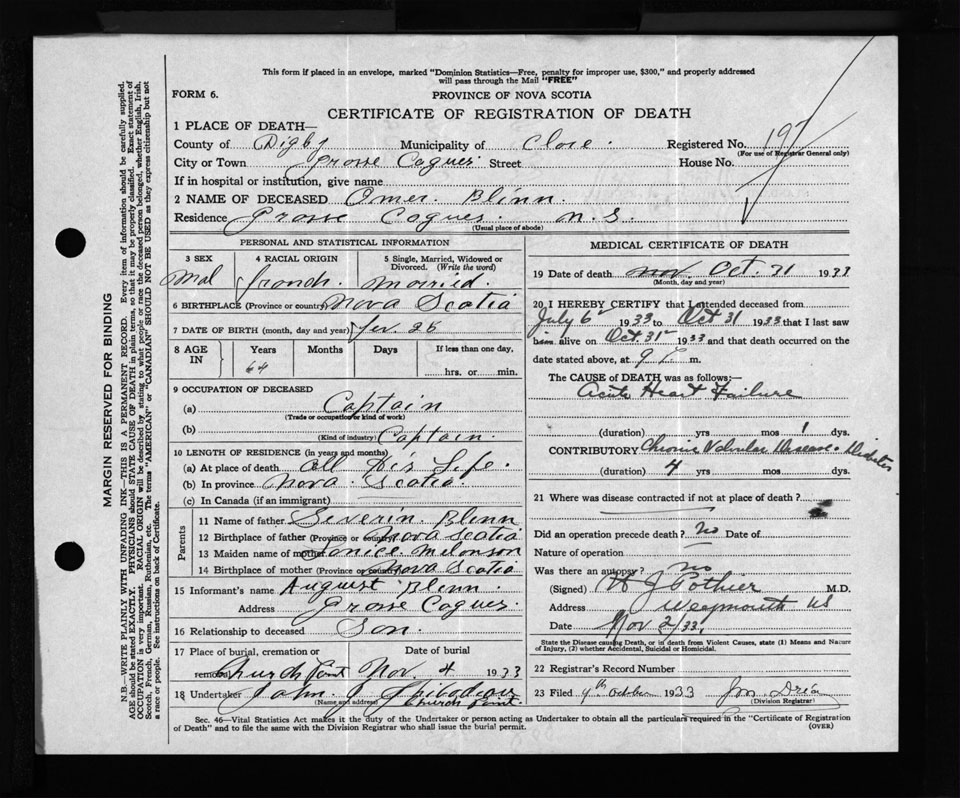 This form if placed in an envelope, marked "Dominion Statistics—Free, penalty for improper use, $300," and properly addressed
will pass through the Mail "FREE"
FORM 6.
PROVINCE OF NOVA SCOTIA
CERTIFICATE OF REGISTRATION OF DEATH
1 PLACE OF DEATH—
County of Digby Municipality of Clare Registered No.
(For use of Registrar General only)
City or Town Grosse Coques Street House No.
If in hospital or institution, give name
2 NAME OF DECEASED Omer Blinn
Residence Grosse Coques N.S.
(Usual place of abode)
PERSONAL AND STATISTICAL INFORMATION
3 SEX
Mal
4 RACIAL ORIGIN
french
5 Single, Married, Widowed or
Divorced. (Write the word)
Married
6 BIRTHPLACE (Province or country) Nova Scotia
7 DATE OF BIRTH (month, day and year)
8 AGE IN
Years Months Days If less than one day,
64 hrs. or min.
9 OCCUPATION OF DECEASED
(a) Captain
(Trade or occupation or kind of work)
(b) Captain.
(Kind of industry)
10 LENGTH OF RESIDENCE (in years and months)
(a) At place of death all His Life.
(b) In province Nova Scotia.
(c) In Canada (if an immigrant)
Parents
11 Name of father Severin Blinn
12 Birthplace of father (Province or country) Nova Scotia
13 Maiden name of mother Melonson
14 Birthplace of mother (Province or country) Nova Scotia
15 Informant's name August Blinn
Address Grosse Coques.
16 Relationship to deceased Son.
17 Place of burial, cremation or Date of burial
removal Church Point Nov. 4 1933
18 Undertaker John J Thibodeau
(Name and address) Church Point.
MEDICAL CERTIFICATE OF DEATH
19 Date of death Nov Oct. 31 1933
(Month, day and year)
20 I HEREBY CERTIFY that I attended deceased from
July 6 1933 to Oct 31 1933 that I last saw
him alive on Oct 31 1933 and that death occurred on the
date stated above, at 9 P. m.
The CAUSE of DEATH was as follows:—
Acute Heart Failure
(duration) yrs mos 1 dys.
CONTRIBUTORY Chronic Valvular Disease. Diabetes
(duration) 4 yrs mos dys.
21 Where was disease contracted if not at place of death?
Did an operation precede death? No Date of
Nature of operation
Was there an autopsy? No
(Signed) Pothier M.D.
Address Weymouth NS
Date Nov 2/33.
State the Disease causing Death, or in death from Violent Causes, state (1) Means and Nature
of Injury, (2) whether Accidental, Suicidal or Homicidal.
22 Registrar's Record Number
23 Filed 4th October 1933
(Division Registrar)
Sec. 46—Vital Statistics Act makes it the duty of the Undertaker or person acting as Undertaker to obtain all the particulars required in the "Certificate of Registration
of Death" and to file the same with the Division Registrar who shall issue the burial permit. (OVER)
MARGIN RESERVED FOR BINDING
N.B.—WRITE PLAINLY WITH UNFADING INK—THIS IS A PERMANENT RECORD. Every item of information should be carefully supplied.
AGE should be stated EXACTLY. PHYSICIANS should STATE CAUSE OF DEATH in plain terms, so that it may be properly classified. Exact statement of
OCCUPATION is very important. RACIAL ORIGIN will be described by stating to what people or race the deceased person belonged, whether English, Irish,
Scotch, French, German, Russian, Ruthenian, etc. The terms "AMERICAN" or "CANADIAN" SHOULD NOT BE USED as they express citizenship but not
a race or people. See instructions on back of Certificate.